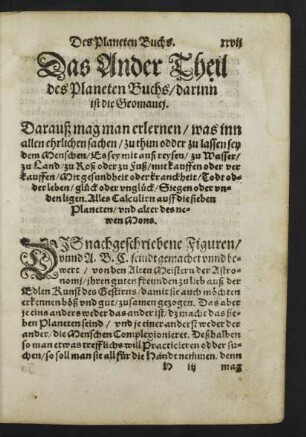 Des Planeten Buchs. xxvij
Das Ander Theil
des Planeten Buchs / darinn
ist die Geomancj.
Darauß mag man erlernen / was inn
allen ehrlichen sachen / zu thun odder zu lassen sey
dem Menschen / Es sey mit auß reysen / zu Wasser /
zu Land / zu Roß oder zu Fuß / mit kauffen oder ver
kauffen / Mit gesundheit oder kranckheit / Todt od-
der leben / glück oder vnglück / Siegen oder vn-
den ligen. Alles Calculirn auff die sieben
Planeten / vnd alter des ne-
wen Mons.
DIS nachgeschriebene Figuren /
vnnd A. B. C. seindt gemacht vnnd be-
wert / von den Alten Meistern der Astro-
nomj / ihren guten freunden zu lieb auß der
Edlen Kunst des Gestirns / damit sie auch möchten
erkennen böß vnd gut / zusamen gezogen. Das aber
je eins anders weder das ander ist / dz macht das sie-
ben Planeten seind / vnd je einer anderst weder der
ander / die Menschen Complexionieret. Deßhalben
so man etwas trefflichs will Practicieren odder su-
chen / so soll man sie all für die Handt nehmen, denn
H iij mag